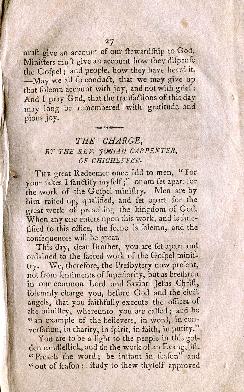 27
must give an account of our stewardship to God,
Ministers must give an account how they dispense
the Gospel; and people, how they have heard it.
—May we all so conduct, that we may give up
that solemn account with joy, and not with grief:
And I pray God, that the transactions of this day
may long be remembered with gratitude and
pious joy.
THE CHARGE,
BY THE REV. JOSIAH CARPENTER,
OF CHICHESTER.
THE great Redeemer once said to men, "For
your sakes I sanctify myself;" or am set apart for
the work of the Gospel ministry. Men are by
him raised up, qualified, and set apart for the
great work of preaching the kingdom of God.
When any one enters upon this work, and is
to this office, the scene is solemn, and the
consequences will be great.
This day, dear Brother, you are set apart and
ordained to the sacred work of the Gospel minis-
try. We, therefore, the Presbytery now present,
not from sentiments of superiority, but as brethren
in our common Lord and Saviour Jesus Christ,
solemnly charge you, before God and the elect
angels, that you faithfully execute the offices of
the ministry, whereunto you are called; and be
"an example of the believers, in word, in con-
versation, in charity, in spirit, in faith, in purity."
You are to be a light to the people in this gol-
den candlestick, and do the work of an Evangelist.
"Preach the word; be instant in season" and
"out of season: study to shew thyself approved